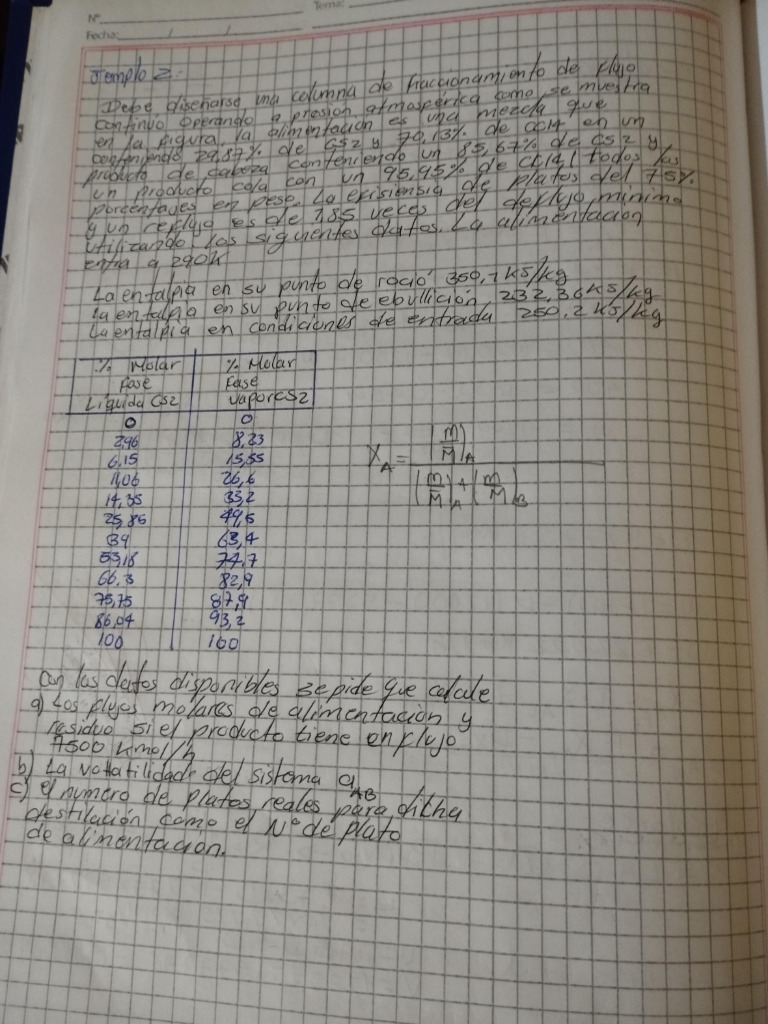 Nº
Tema:
Fecha: / /
Jemplo 2:
Debe diseñarse una columna de fraccionamiento de flujo
continuo operando a presión atmosférica como se muestra
en la figura. la alimentación es una mezcla que
conteniendo 29,87% de CS2 y 70,13% de CCl4 en un
producto de cabeza conteniendo un 85,67% de CS2 y
un producto cola con un 95,95% de CCl4, todos los
porcentajes en peso. La exisiensia de platos del 75%
y un reflujo es de 1,85 veces del deflujo minimo
utilizando los siguientes datos. La alimentación
entra a 290K
La entalpia en su punto de roció 350,7 KJ/kg
la entalpia en su punto de ebullición 232,36 KJ/kg
La entalpia en condiciones de entrada 250,2 KJ/kg
% Molar % Molar
Fase Fase
Liquida CS2 vapor CS2
0 0
2,96 8,23
6,15 15,55
11,06 26,6
14,35 33,2
25,85 49,5
39 63,4
53,18 74,7
66,3 82,9
75,75 87,9
86,04 93,2
100 100
XA = (m/M)A / (m/M)A + (m/M)B
Con los datos disponibles se pide que calcule
a) Los flujos molares de alimentación y
residuo si el producto tiene en flujo
7500 Kmol/h
b) La volatilidad del sistema αAB
c) el numero de platos reales para dicha
destilación como el Nº de plato
de alimentación.